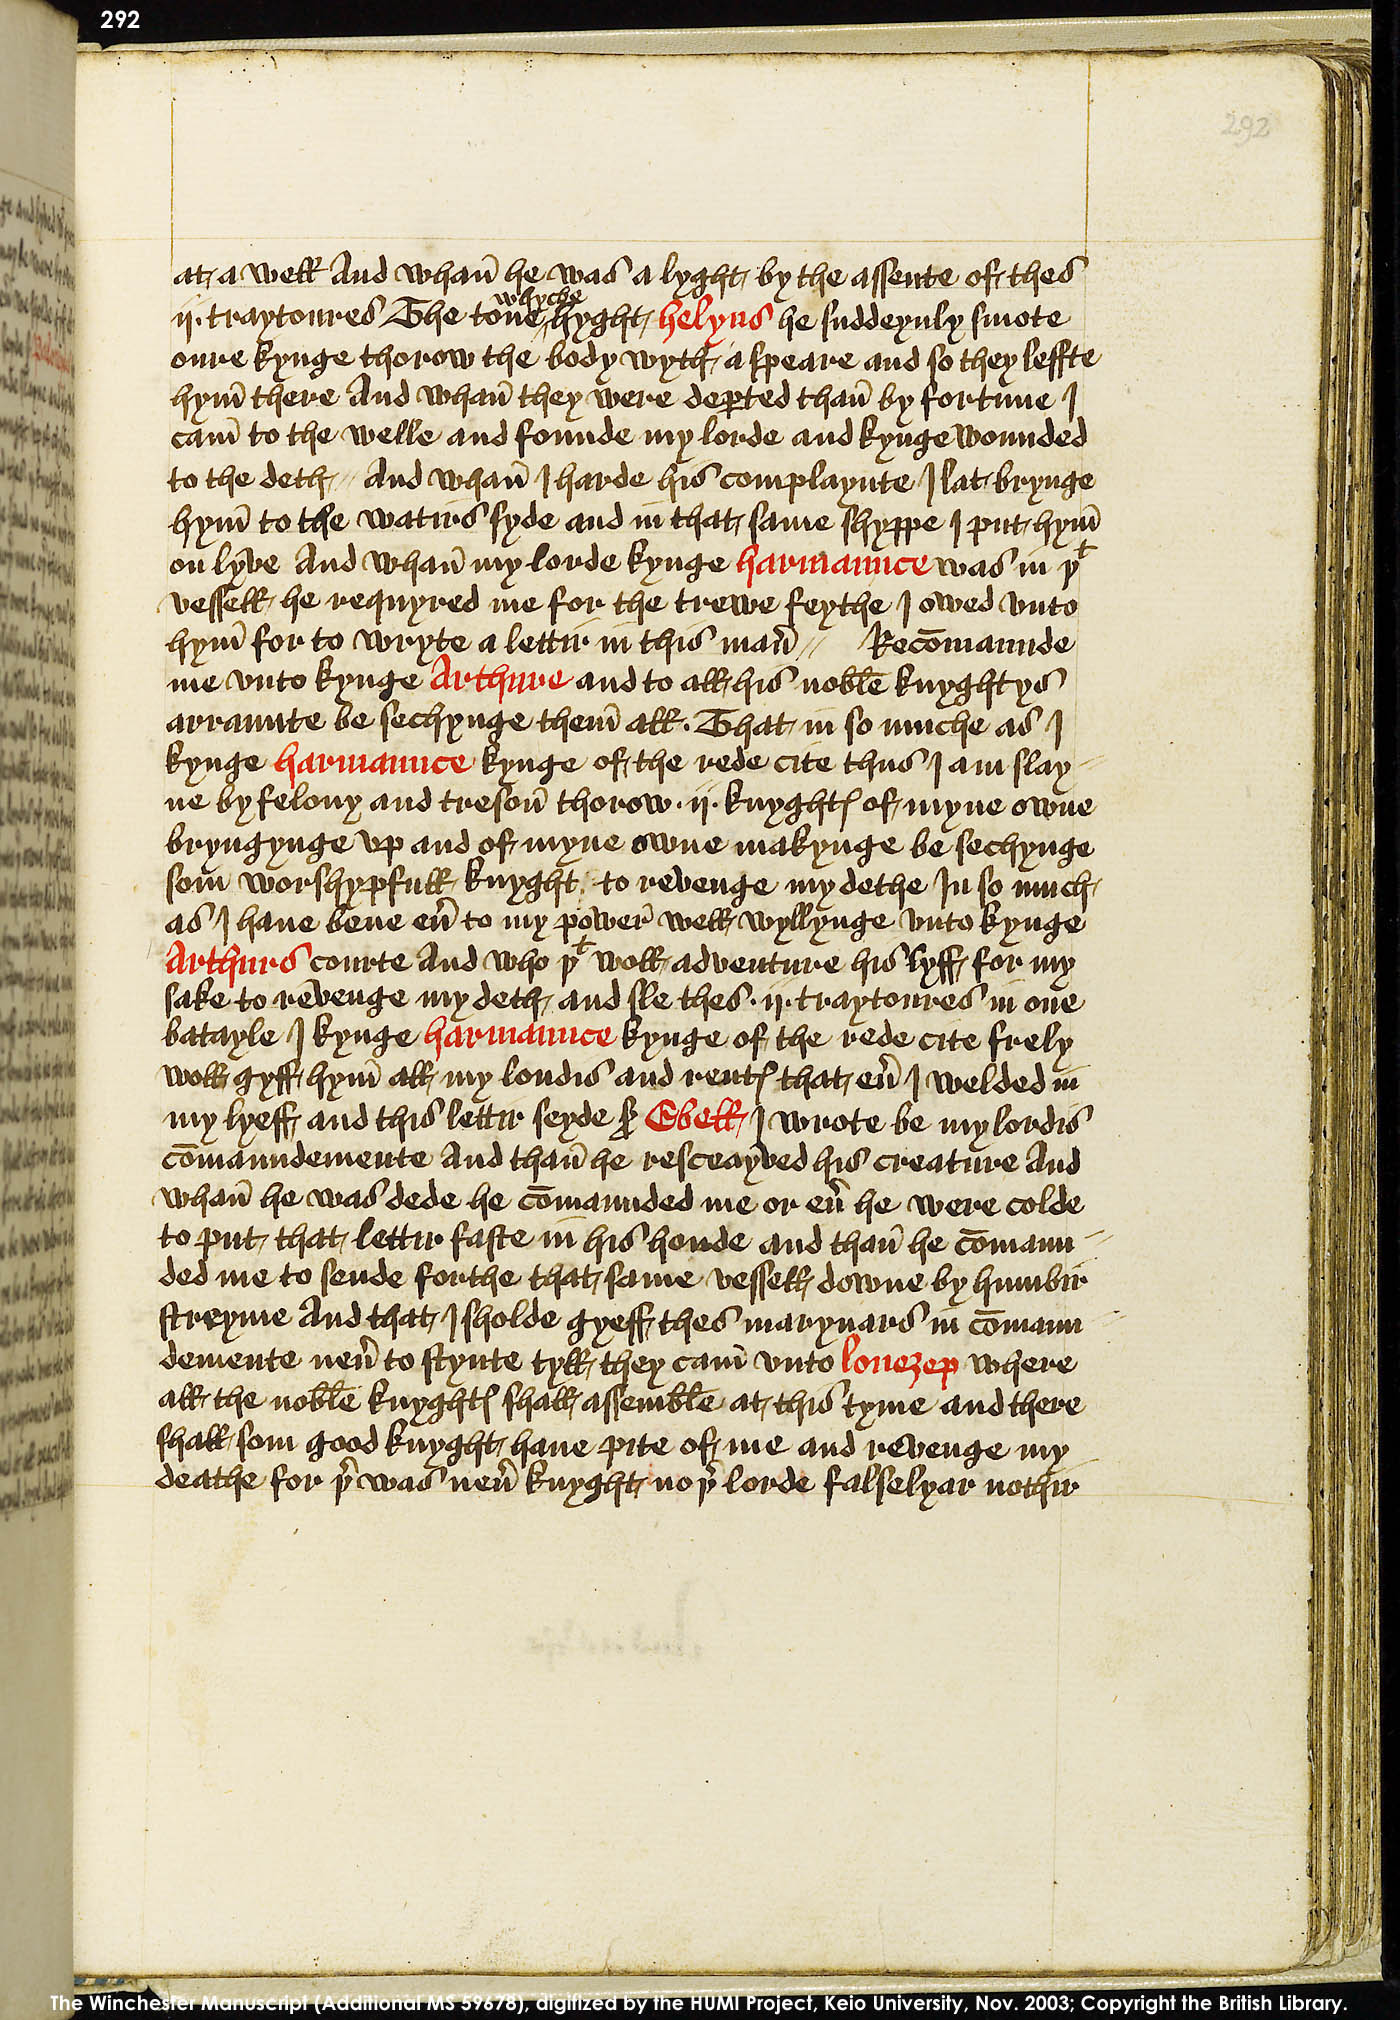 292
292
at a well And whan̄ he was a lyght by the assente of thes
ij. traytoures The tone whyche hyght helyus he suddeynly smote
oure kynge thorow the body wyth a speare and so they leffte
hym̄ there And whan̄ they were deꝑted than̄ by fortune I
cam̄ to the welle and founde my lorde and kynge wounded
to the deth // And whan̄ I harde his complaynte I lat brynge
hym̄ to the watirs syde and in that same shyppe I put hym̄
on lyve And whan̄ my lorde kynge harmaunce was in yᵗ
vessell he requyred me for the trewe feythe I owed vnto
hym̄ for to wryte a lettir in this man̄ // Recōmaunde
me vnto kynge Arthure and to all his noble knyghtys
arraunte be sechynge them̄ all. That in so muche as I
kynge harmaunce kynge of the rede cite thus I am slay-
ne by felony and treson̄ thorow .ij. knyghtꝭ of myne owne
bryngynge vp and of myne owne makynge be sechynge
som worshypfull knyght to revenge my dethe In so much
as I haue bene eū to my power well wyllynge vnto kynge
Arthurs courte And who yᵗ woll adventure his lyff for my
sake to revenge my deth and sle thes .ij. traytoures in one
batayle I kynge harmaunce kynge of the rede cite frely
woll gyff hym̄ all my londis and rentꝭ that eū I welded in
my lyeff and this lettir seyde sꝛ Ebell I wrote be my lordis
cōmaundemente And than̄ he resceayved his creature And
whan̄ he was dede he cōmaunded me or eū he were colde
to put that lettir faste in his honde and than̄ he cōmaun-
ded me to sende forthe that same vessell downe by humbir
streyme And that I sholde gyeff thes marynars in cōmaun-
demente neū to stynte tyll they cam̄ vnto louezep where
all the noble knyghtꝭ shall assemble at this tyme and there
shall som good knyght haue pite of me and revenge my
deathe for yʳ was neū knyght noyʳ lorde falselyar nothir
The Winchester Manuscript (Additional MS 59678), digitized by the HUMI Project, Keio University, Nov. 2003; Copyright the British Library.